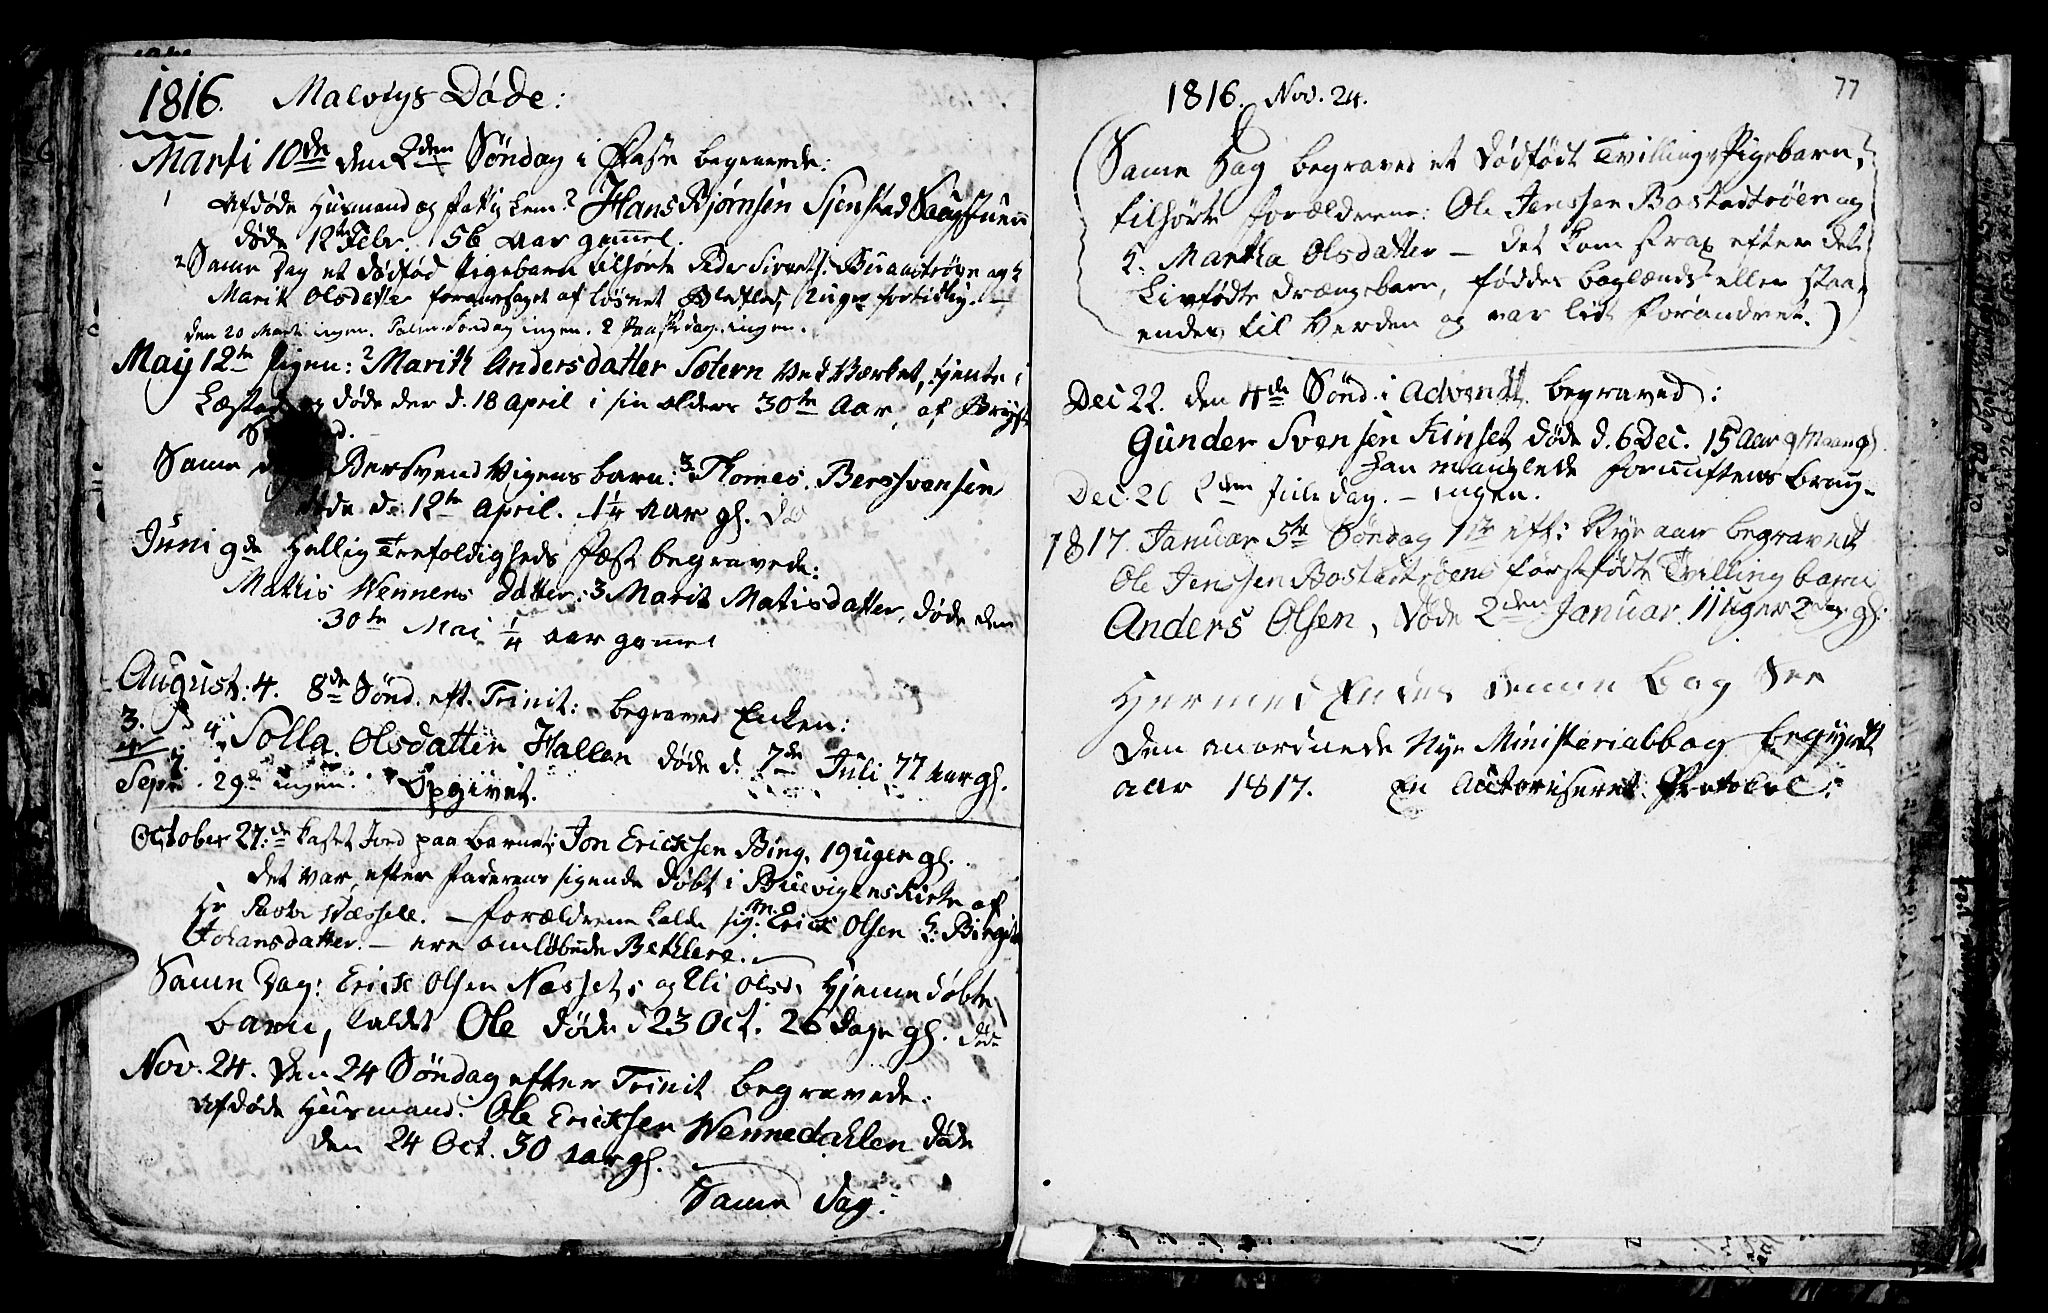 1816. Malvigs Døde:
Marti 10de den 2den Søndag i Faste begravede:
1 Afdøde Huusmand og fattig Lem? Hans Bjørnsen Sjenstad Saugstuen
døde 12te Febr. 56 Aar gammel.
2 Samme Dag et dødfød Pigebarn tilhørte Peder Siverts: Buaastrøen og K
Marit Olsdatter foraarsaget af løsnet Blodflod, Uger fortidlig. —
den 20 Mart. ingen. Palm Søndag ingen. 2 Paaskedag ingen.
May 12te Pigen: 2 Marith Andersdatter Sætern ved Værket, tjente i
Læstad og døde der d. 18 April i sin alders 30te Aar, af Bryst
Samme Bersvend Vigens barn: 3 Thomes Berssvensen
døde d: 12te April. 1 1/4 Aar gl.
Juni 9de Hellig Trefoldigheds Fæst begravede:
Mathis Wennens Datter: 3 Marit Matisdatter, døde den
30te Mai 1/4 Aar gammel
August: 4. 8de Sønd. eft. Trinit: begraved Enken:
4 Solla Olsdatter Hallen døde d. 7de Juli 77 Aar gl.
Sept. 29de ingen. Opgivet.
October 27:de kastet Jord paa barnet: Jon Ericksen Bing, 19 uger gl.
det var efter Faderens sigende døbt i Buevigens Kirke af
Hr Pastor Wessell. — Forældrene kalde sig: Erick Olsen K: Birgit
Johansdatter. — ere omløbende Betlere.
Samme Dag: Erick Olsen Næssets og Eli Olsd: Hjemme døbte
barn, kaldt Ole døde d 23 Oct. 26 Dage gl. døde
Nov. 24. Den 24 Søndag efter Trinit begravede:
Afdøde Huusmand: Ole Ericksen Wennedahlen døde
den 24 Oct. 30 Aar gl.
Samme Dag:
77
1816. Nov. 24.
(Samme Dag begraved et dødfødt Tvillinge Pigebarn,
tilhørte Forældrene: Ole Jenssen Bostadtrøen og
K. Martha Olsdatter — det kom strax efter det
Livfødte Drængebarn,føddes baglænds eller staa-
ende, til Verden og var lidt forandret.)
Dec 22. den 4de Sønd. i Advendt begraved:
Gunder Svensen Kinset døde d. 6 Dec. 15 Aar 9 Maan gl.
han manglede Fornuftens brug.
Dec. 26 2den Juledag. — ingen.
1817. Januar 5te Søndag 1te eft: Nyeaar begravedt
Ole Jenssen Bostadtrøens førstfødte Tvilling barn
Anders Olsen, døde 2den Januar 11 uger 2 dag. gl.
Hermed Endes denne Bog See
Den anordnede Nye Ministerialbog begyndt
aar 1817. En Autoriseret Protocol: